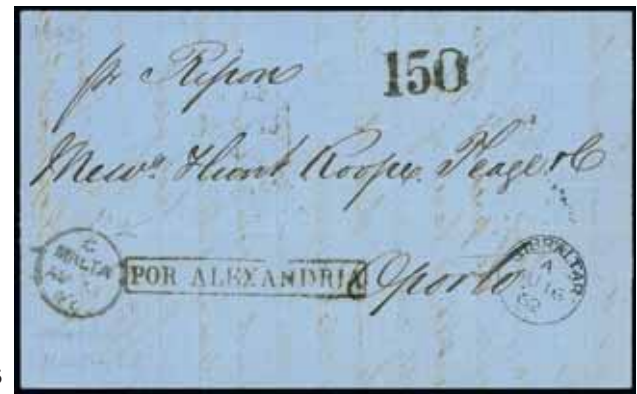 pr Ripon
150
Messrs Hunt Roope Teage & C
C
MALTA
AU
POR ALEXANDRIA
Oporto
GIBRALTAR
A
AU 16
62